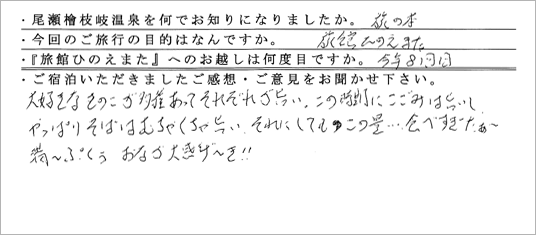 ・尾瀬檜枝岐温泉を何でお知りになりましたか。 旅の本
・今回のご旅行の目的はなんですか。 旅館ひのえまた
・『旅館ひのえまた』へのお越しは何度目ですか。 今年8回目
・ご宿泊いただきましたご感想・ご意見をお聞かせ下さい。
大好きなきのこが多種あってそれぞれが旨い。この時期にこごみは旨いし
やっぱりそばはむちゃくちゃ旨い。それにしてもこの量…食べすぎたぁ〜
満〜ぷくぅ おなか大感げ〜き!!